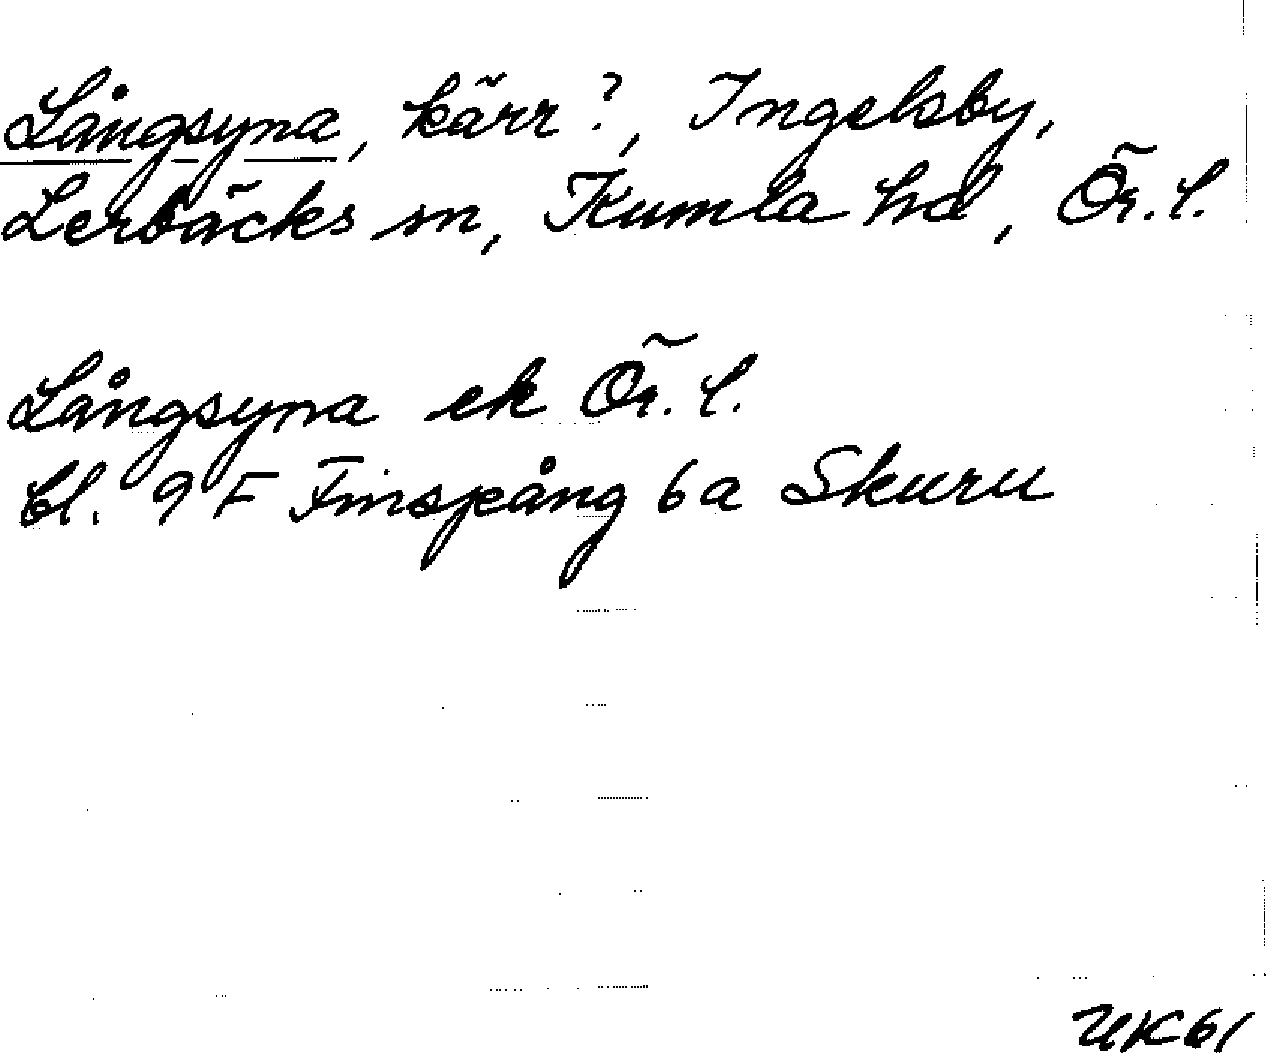 Långsyna, kärr?, Ingelsby,
Lerbäcks sn, Kumla hd, Ör. l.
Långsyna ek Ör. l.
bl. 9 F Finspång 6a Skuru
UK61